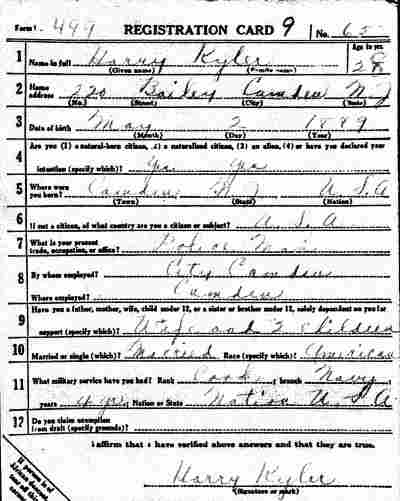 Form 1 499 REGISTRATION CARD 9 No. 65
1 Name in full Harry Kyler Age in yrs. 28
(Given name) (Family name)
2 Home address 220 Bailey Camden N J
(No.) (Street) (City) (State)
3 Date of birth May 2 1889
(Month) (Day) (Year)
Are you (1) a natural-born citizen, (2) a naturalized citizen, (3) an alien, (4) or have you declared your
4 intention (specify which)? Yes Yes
5 Where were you born? Camden N J U S A
(Town) (State) (Nation)
6 If not a citizen, of what country are you a citizen or subject? U. S. A
7 What is your present trade, occupation, or office? Police Man
8 By whom employed? City Camden
Where employed? Camden
Have you a father, mother, wife, child under 12, or a sister or brother under 12, solely dependent on you for
9 support (specify which)? Wife and 2 Children
10 Married or single (which)? Married Race (specify which)? American
11 What military service have you had? Rank Cook; branch Navy;
years 4 yrs; Nation or State Nation U S A
12 Do you claim exemption from draft (specify grounds)?
I affirm that I have verified above answers and that they are true.
If person is of
Harry Kyler
(Signature or mark)